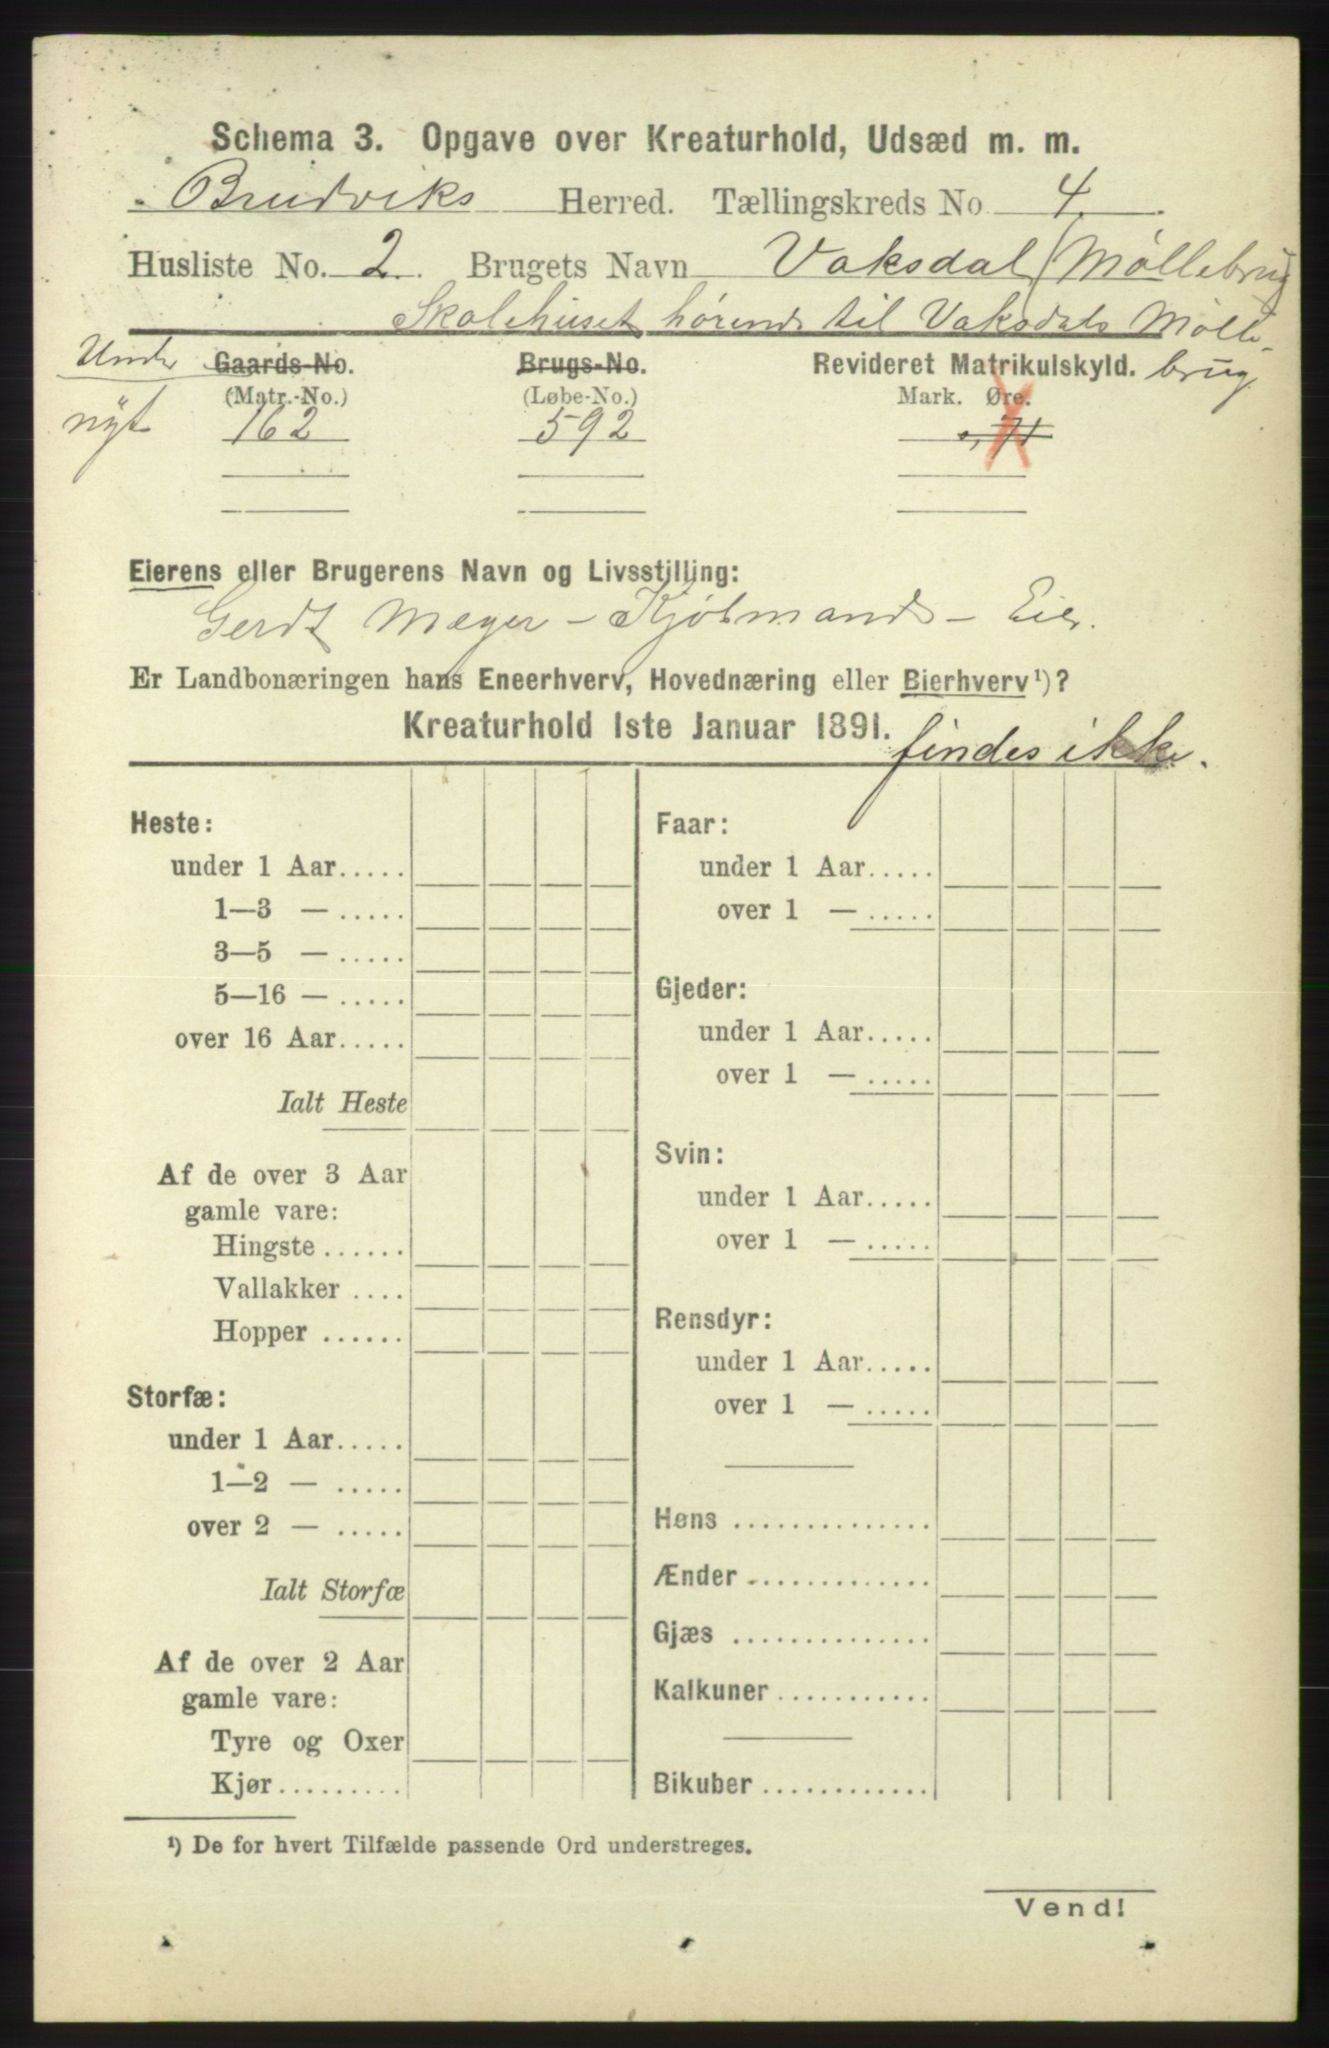 Schema 3. Opgave over Kreaturhold, Udsæd m. m.
Brudviks Herred. Tællingskreds No 4.
Husliste No. 2. Brugets Navn Vaksdal (Møllebrug
Skolehuset hørende til Vaksdals Mølle-
brug
Under Gaards-No. Brugs-No. Revideret Matrikulskyld.
nyt (Matr.-No.) (Løbe-No.) Mark. Øre.
162 592 0,71
Eierens eller Brugerens Navn og Livsstilling:
Gerdt Meyer - Kjøbmand - Eier.
Er Landbonæringen hans Eneerhverv, Hovednæring eller Bierhverv¹)?
Kreaturhold 1ste Januar 1891. findes ikke.
Heste:
under 1 Aar.....
1—3 — .....
3—5 — .....
5—16 — .....
over 16 Aar.....
Ialt Heste
Af de over 3 Aar
gamle vare:
Hingste ......
Vallakker ....
Hopper ......
Storfæ:
under 1 Aar.....
1—2 — .....
over 2 — .....
Ialt Storfæ
Af de over 2 Aar
gamle vare:
Tyre og Oxer
Kjør.........
Faar:
under 1 Aar.....
over 1 — .....
Gjeder:
under 1 Aar.....
over 1 — .....
Svin:
under 1 Aar.....
over 1 — .....
Rensdyr:
under 1 Aar.....
over 1 — .....
Høns ..............
Ænder .............
Gjæs ..............
Kalkuner ...........
Bikuber ............
¹) De for hvert Tilfælde passende Ord understreges.
Vend!